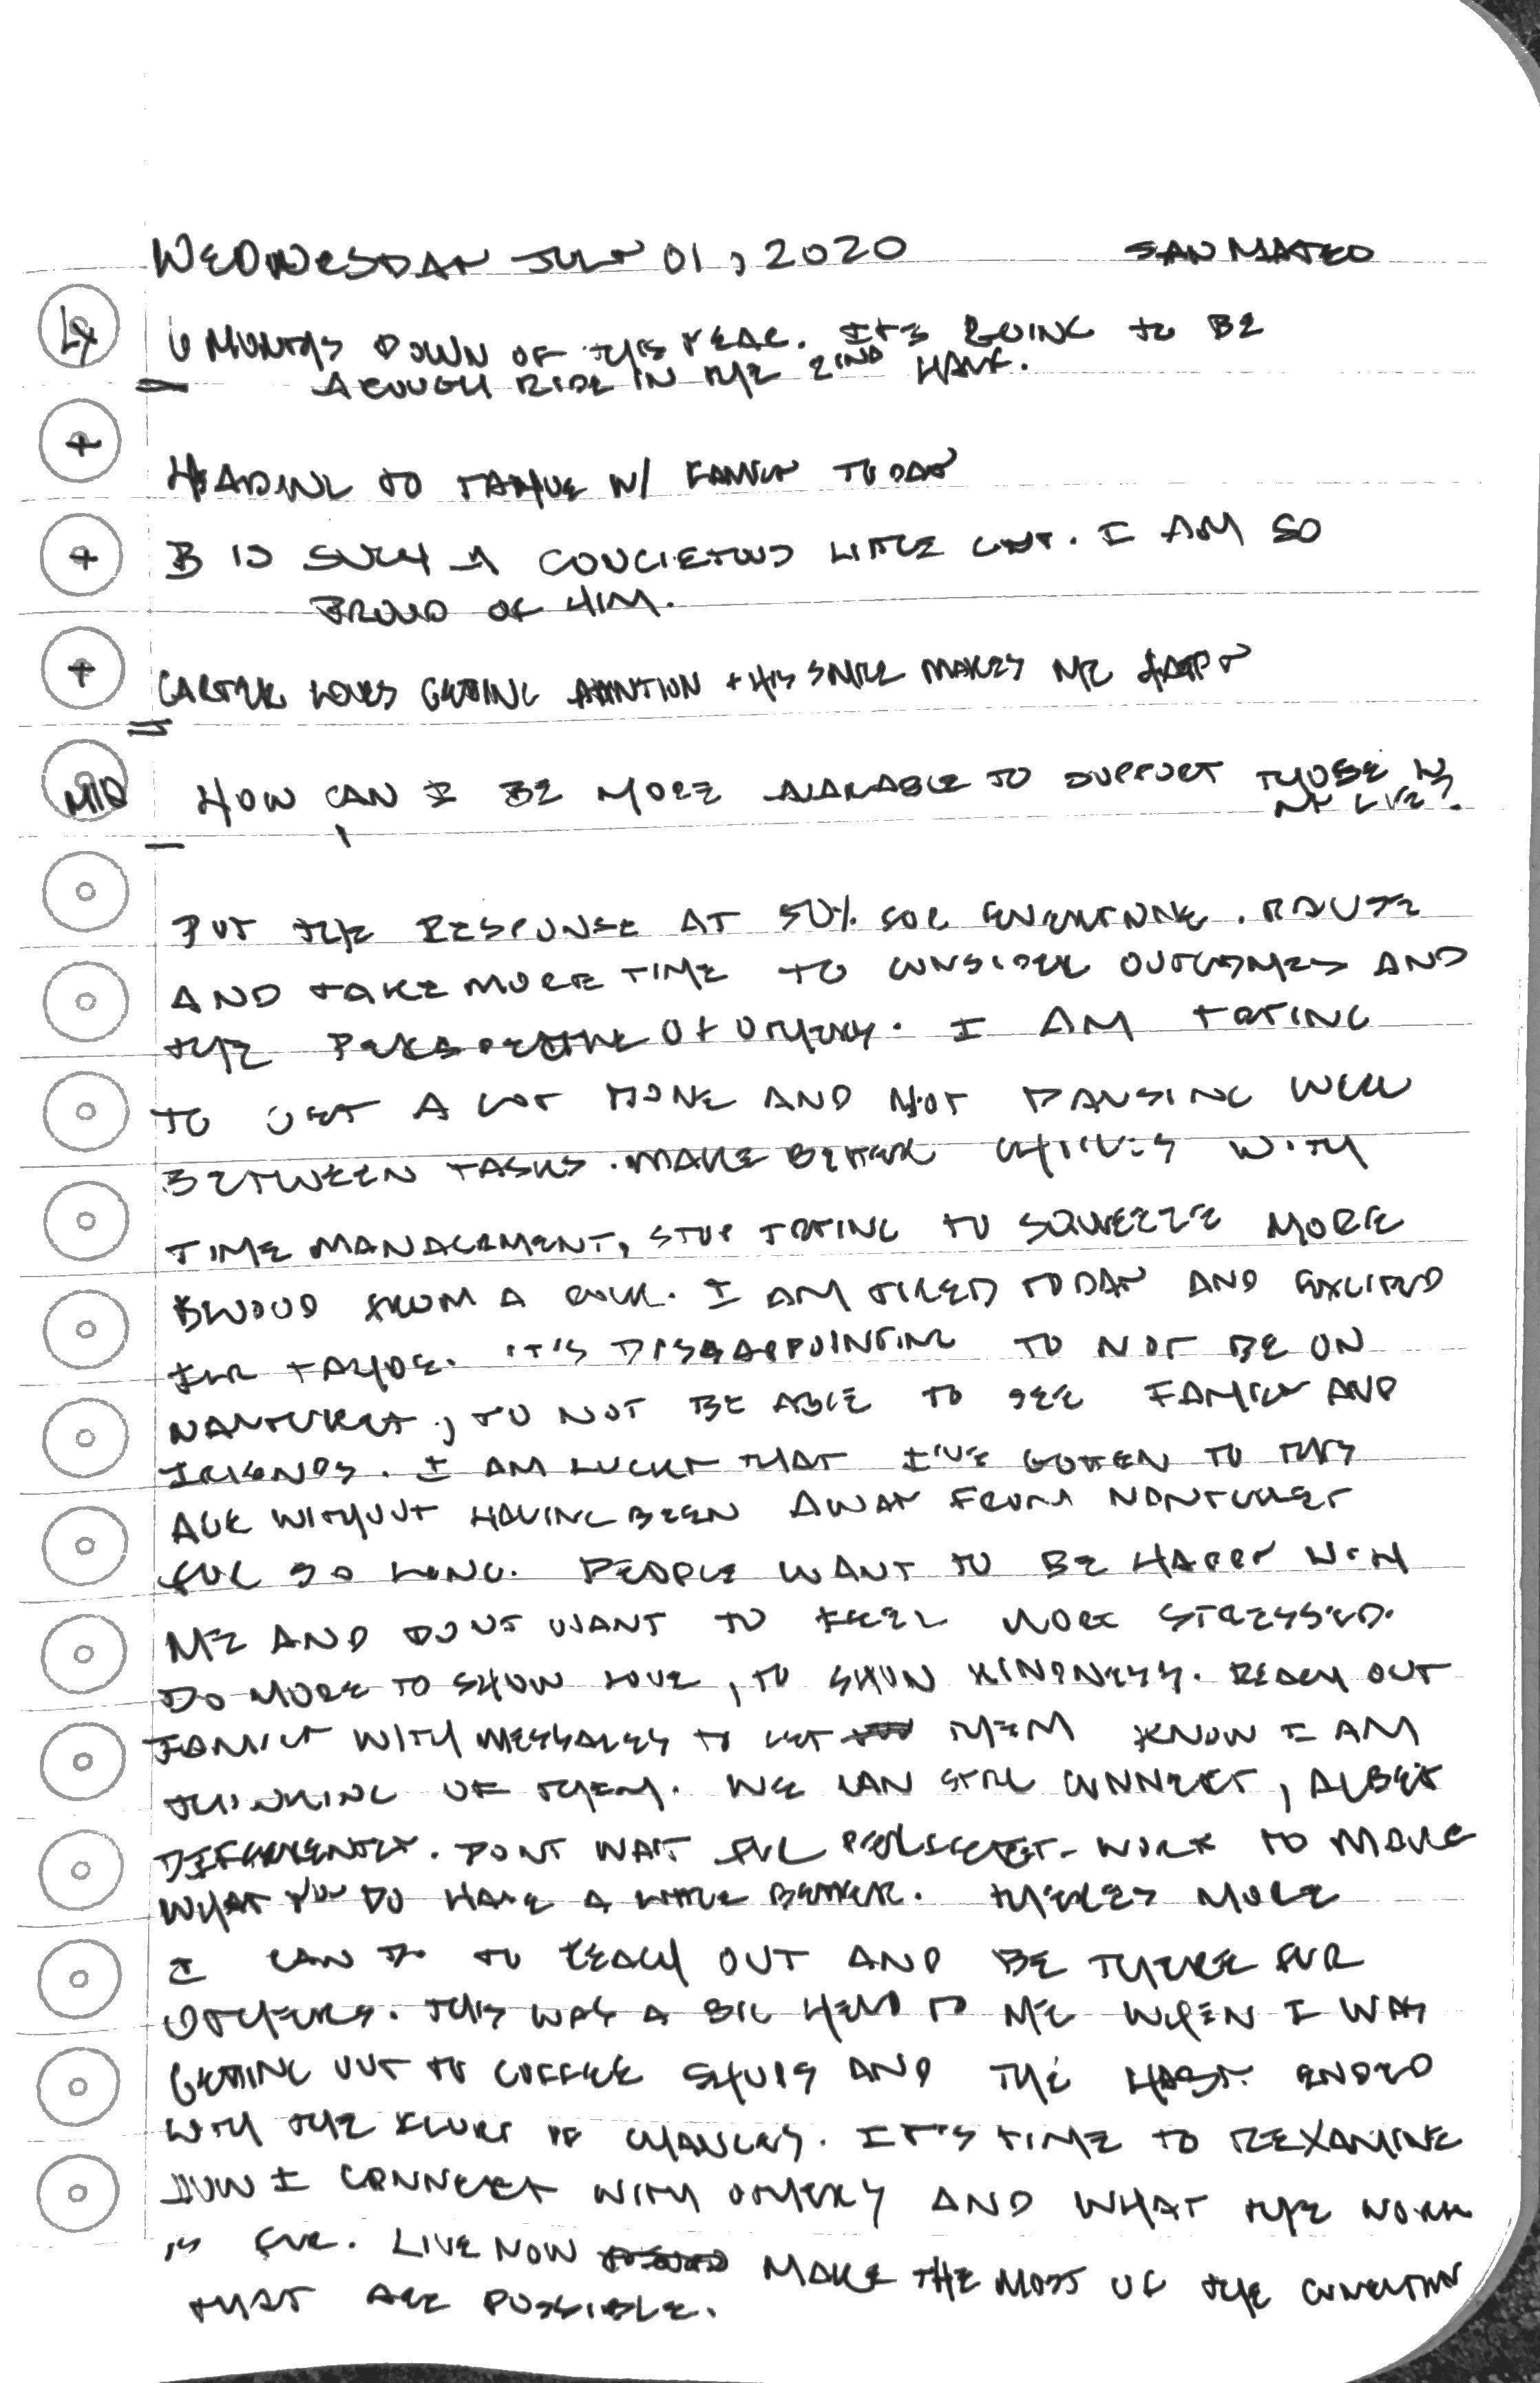 WEDNESDAY JULY 01, 2020 SAN MATEO
L4 6 MONTHS DOWN OF THIS YEAR. IT'S GOING TO BE
A ROUGH RIDE IN THE 2ND HALF.
+ HEADING TO TAHOE W/ FAMILY TODAY
+ B IS SUCH A LITTLE I AM SO
PROUD OF HIM.
+ CARTER LOVES GETTING ATTENTION + HIS SMILE MAKES ME HAPPY
HOW CAN I BE MORE AVAILABLE TO SUPPORT THOSE IN
MY LIFE?
PUT THE RESPONSE AT 50% FOR EVERYTHING. PAUSE
AND TAKE MORE TIME TO CONSIDER OUTCOMES AND
THE PERSPECTIVE OF OTHERS. I AM TRYING
TO GET A LOT DONE AND NOT PAUSING WELL
BETWEEN TASKS. MAKE BETTER CHOICES WITH
TIME MANAGEMENT, STOP TRYING TO SQUEEZE MORE
BLOOD FROM A ROCK. I AM TIRED TODAY AND EXCITED
FOR TAHOE. IT'S DISSAPPOINTING TO NOT BE ON
NANTUCKET, TO NOT BE ABLE TO SEE FAMILY AND
FRIENDS. I AM LUCKY THAT I'VE GOTTEN TO THIS
AGE WITHOUT HAVING BEEN AWAY FROM NANTUCKET
FOR SO LONG. PEOPLE WANT TO BE HAPPY WITH
ME AND DON'T WANT TO FEEL MORE STRESSED.
DO MORE TO SHOW LOVE, TO SHOW KINDNESS. REACH OUT
FAMILY WITH MESSAGES TO LET THEM KNOW I AM
THINKING OF THEM. WE CAN STILL CONNECT, ALBEIT
DIFFERENTLY. DON'T WAIT FOR PERFECT - WORK TO MAKE
WHAT YOU DO HAVE A LITTLE BETTER. THERE'S MORE
I CAN DO TO REACH OUT AND BE THERE FOR
OTHERS. THIS WAS A BIG HELP TO ME WHEN I WAS
GETTING OUT TO COFFEE SHOPS AND THE ENDED
WITH THE OF CHANGES. IT'S TIME TO REXAMINE
HOW I CONNECT WITH OTHERS AND WHAT THE WORK
IS FOR. LIVE NOW MAKE THE MOST OF THE
THAT ARE POSSIBLE.